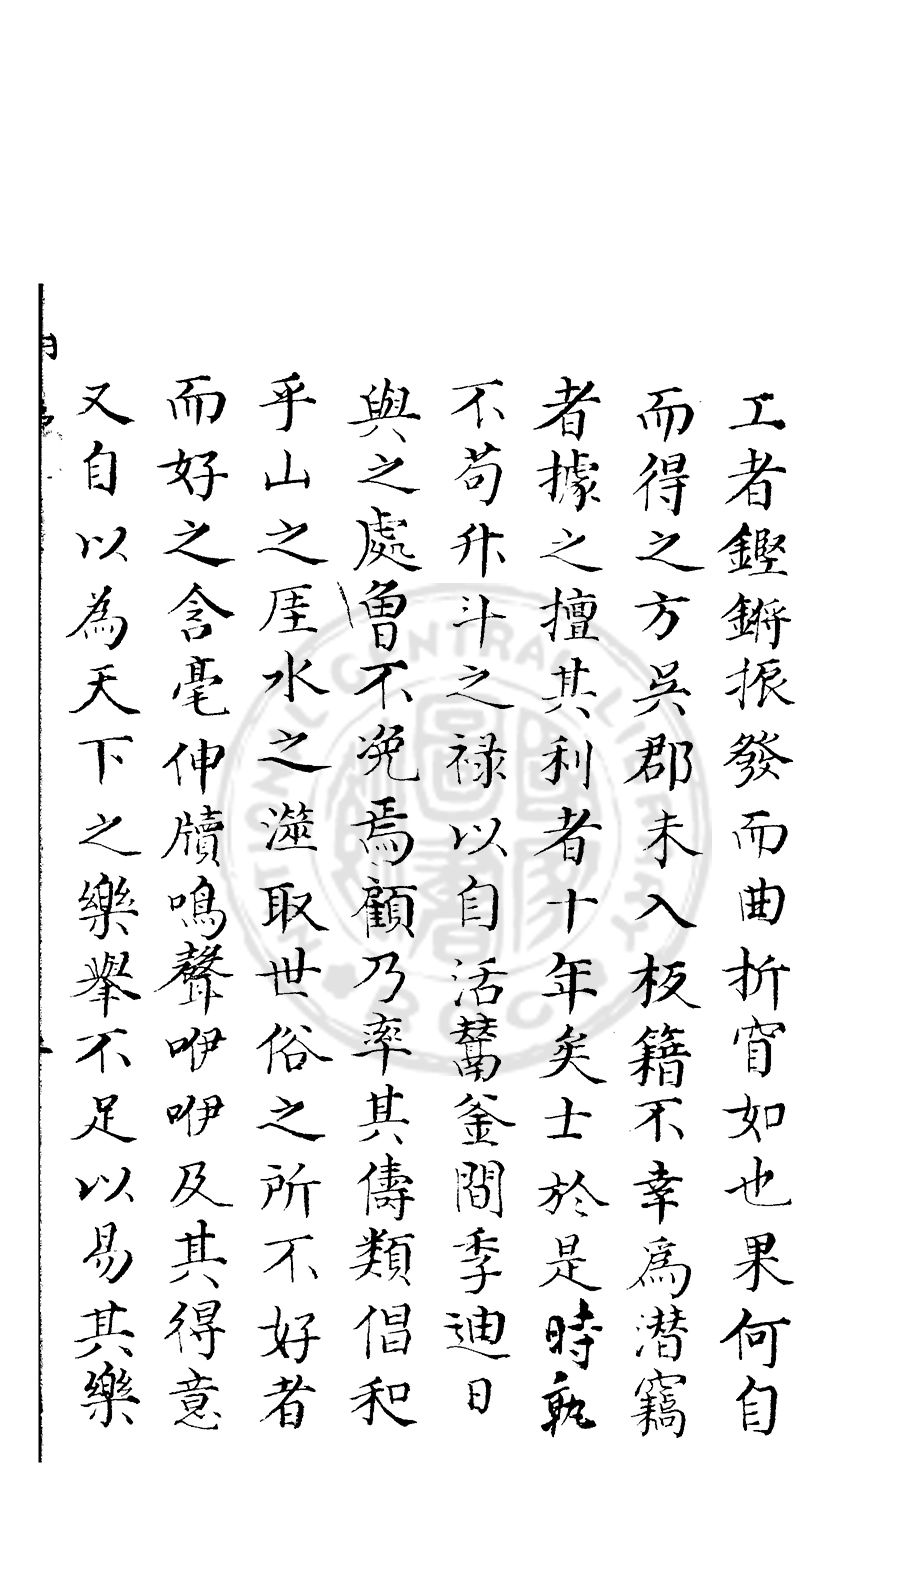 工者鏗鏘振發而曲折窅如也果何自
而得之方吳郡未入板籍不幸爲潜竊
者據之擅其利者十年矣士於是時孰
不苟升斗之祿以自活鬵釜間季迪日
與之處曽不浼焉顧乃率其儔類倡和
乎山之厓水之澨取世俗之所不好者
而好之含毫伸牘鳴聲咿咿及其得意
又自以為天下之樂舉不足以易其樂